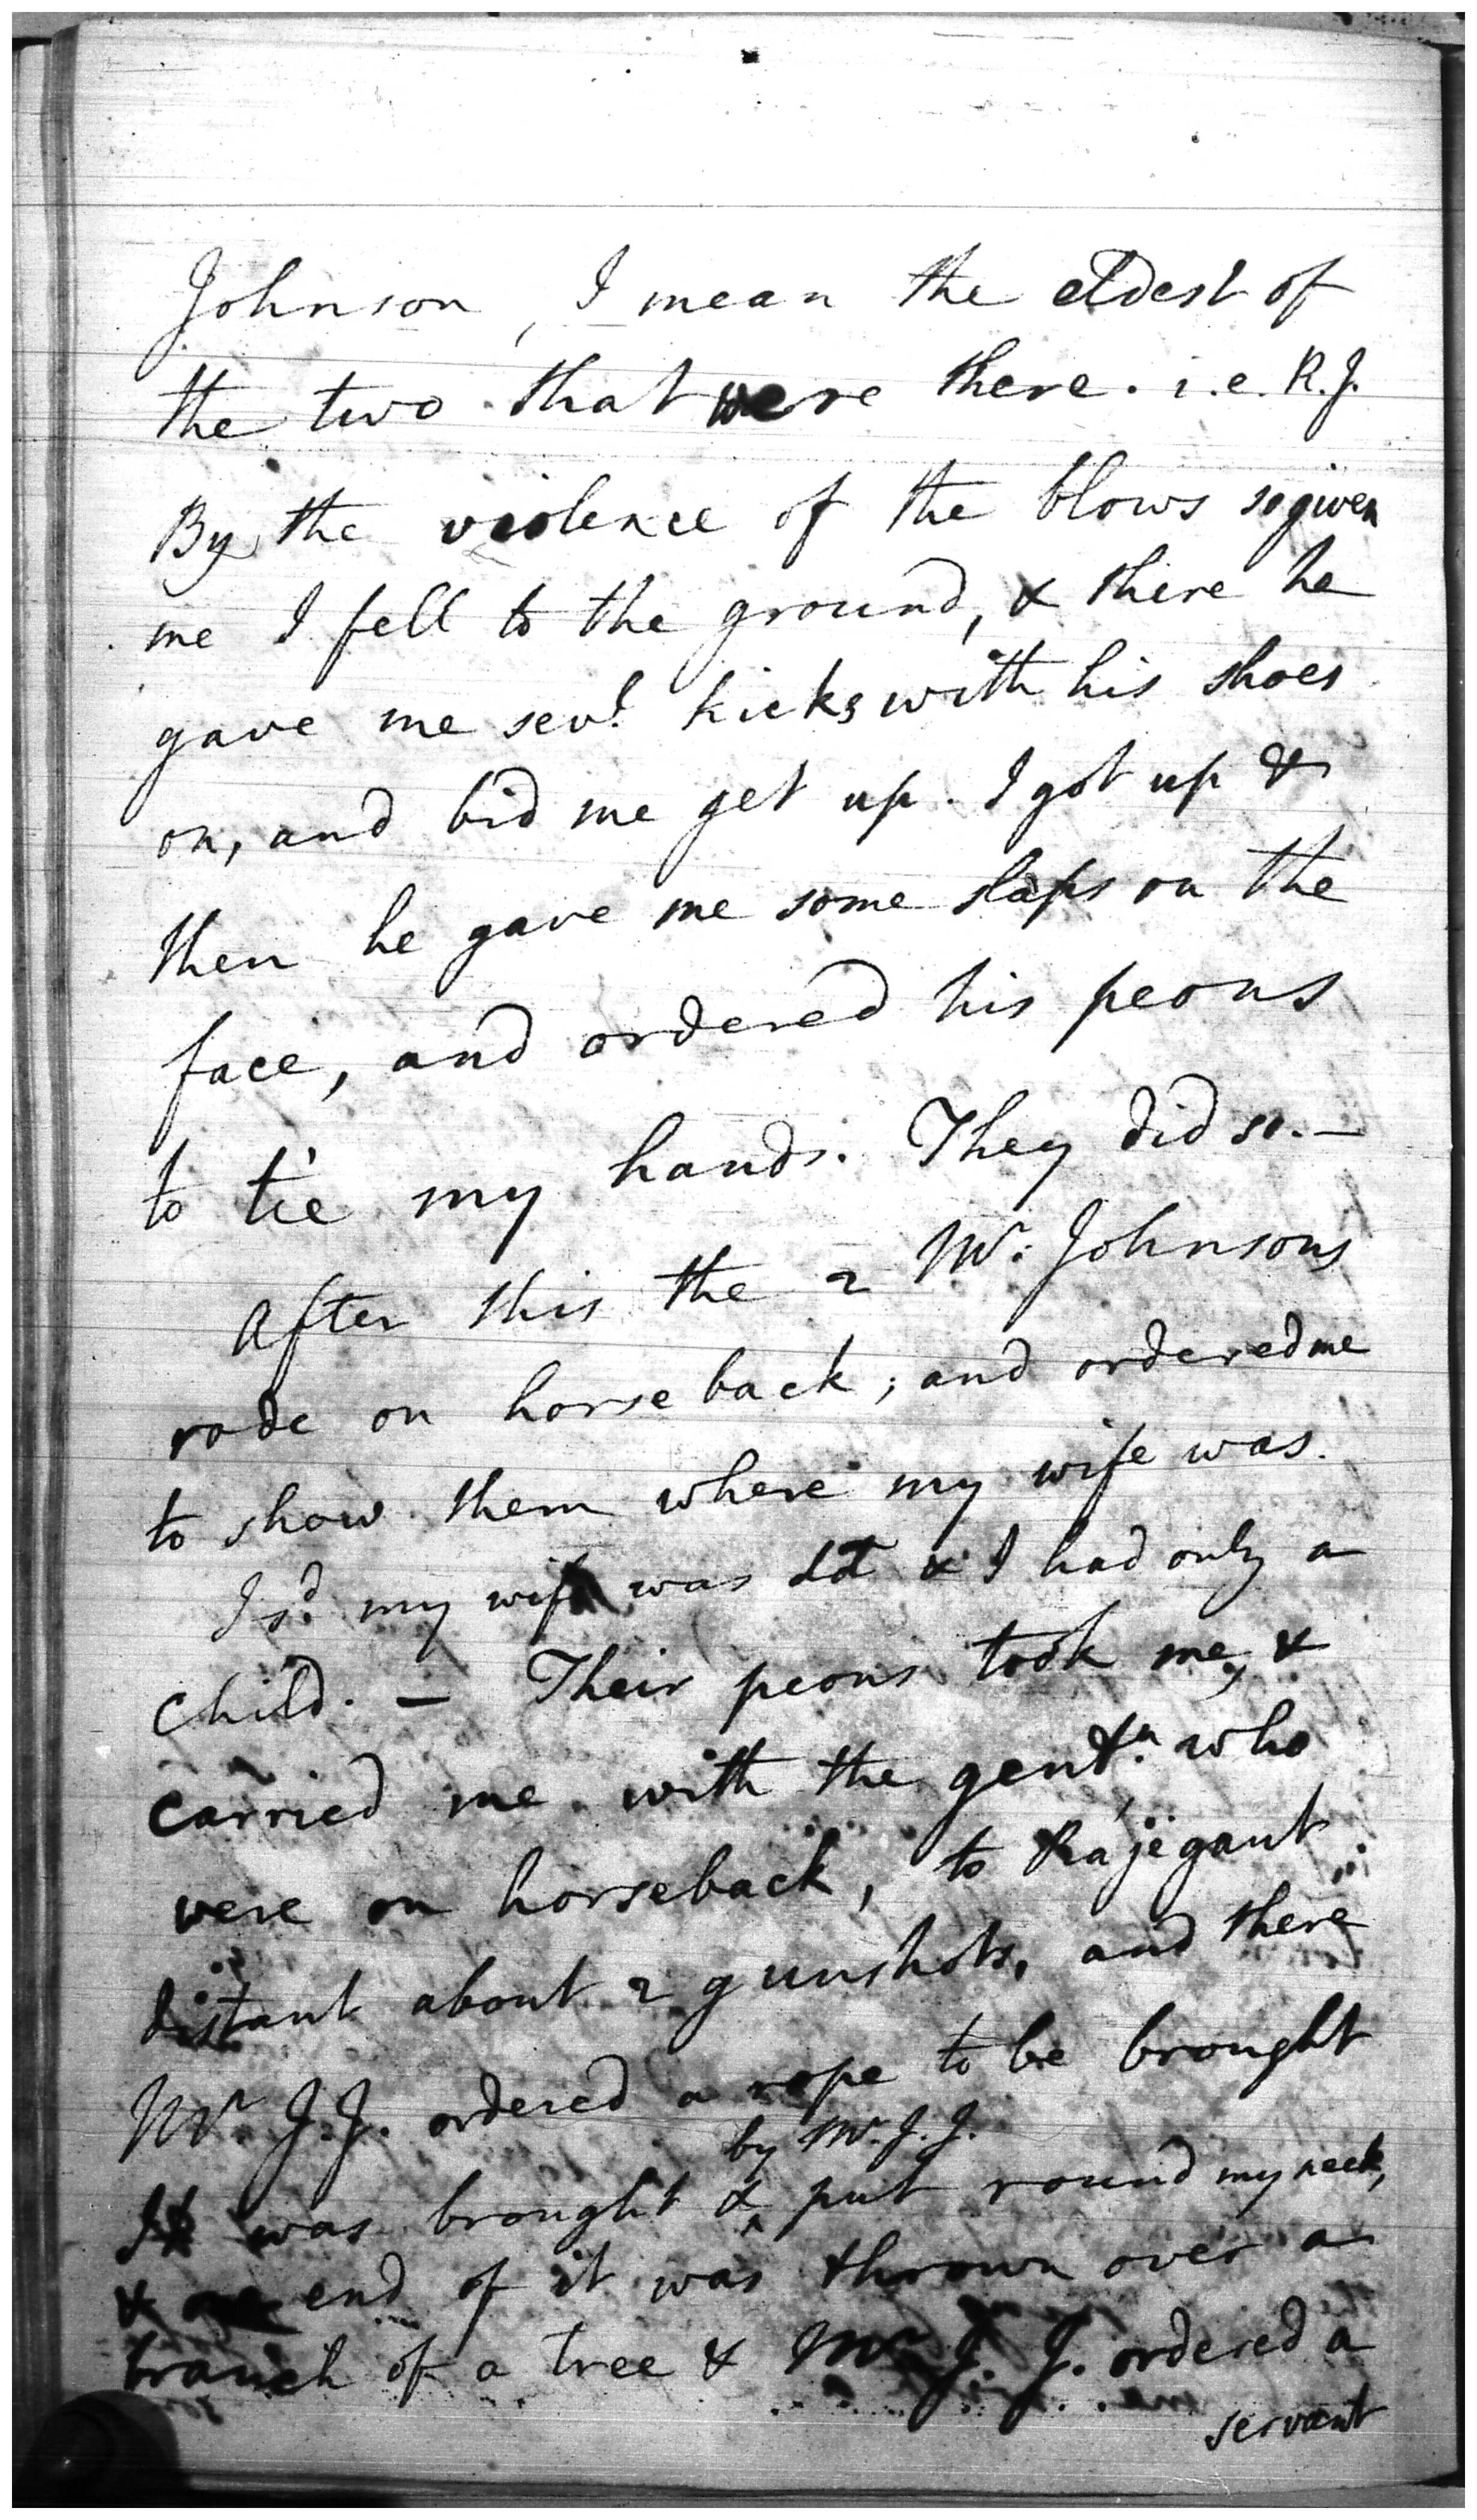 Johnson, I mean the eldest of
the two that were there. i.e. R.J.
By the violence of the blows so given
me I fell to the ground, & there he
gave me sevl. kicks with his shoes
on, and bid me get up. I got up &
then he gave me some slaps on the
face, and ordered his peons
to tie my hands. They did so. —
After this the 2 Mr. Johnsons
rode on horseback; and ordered me
to show them where my wife was.
I sd. my wife was & I had only a
child. — Their peons took me, &
carried me with the gentn. who
were on horseback, to Rajegaut
distant about 2 gunshots, and there
Mr. J.J. ordered a rope to be brought
by Mr. J.J.
It was brought & ^ put round my neck,
& one end of it was thrown over a
branch of a tree & Mr. J. J. ordered a
servant